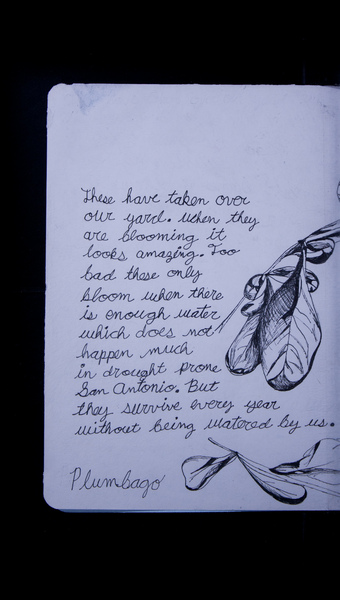 These have taken over
our yard. When they
are blooming it
looks amazing. Too
bad these only
bloom when there
is enough water
which does not
happen much
in drought prone
San Antonio. But
they survive every year
without being watered by us.
Plumbago